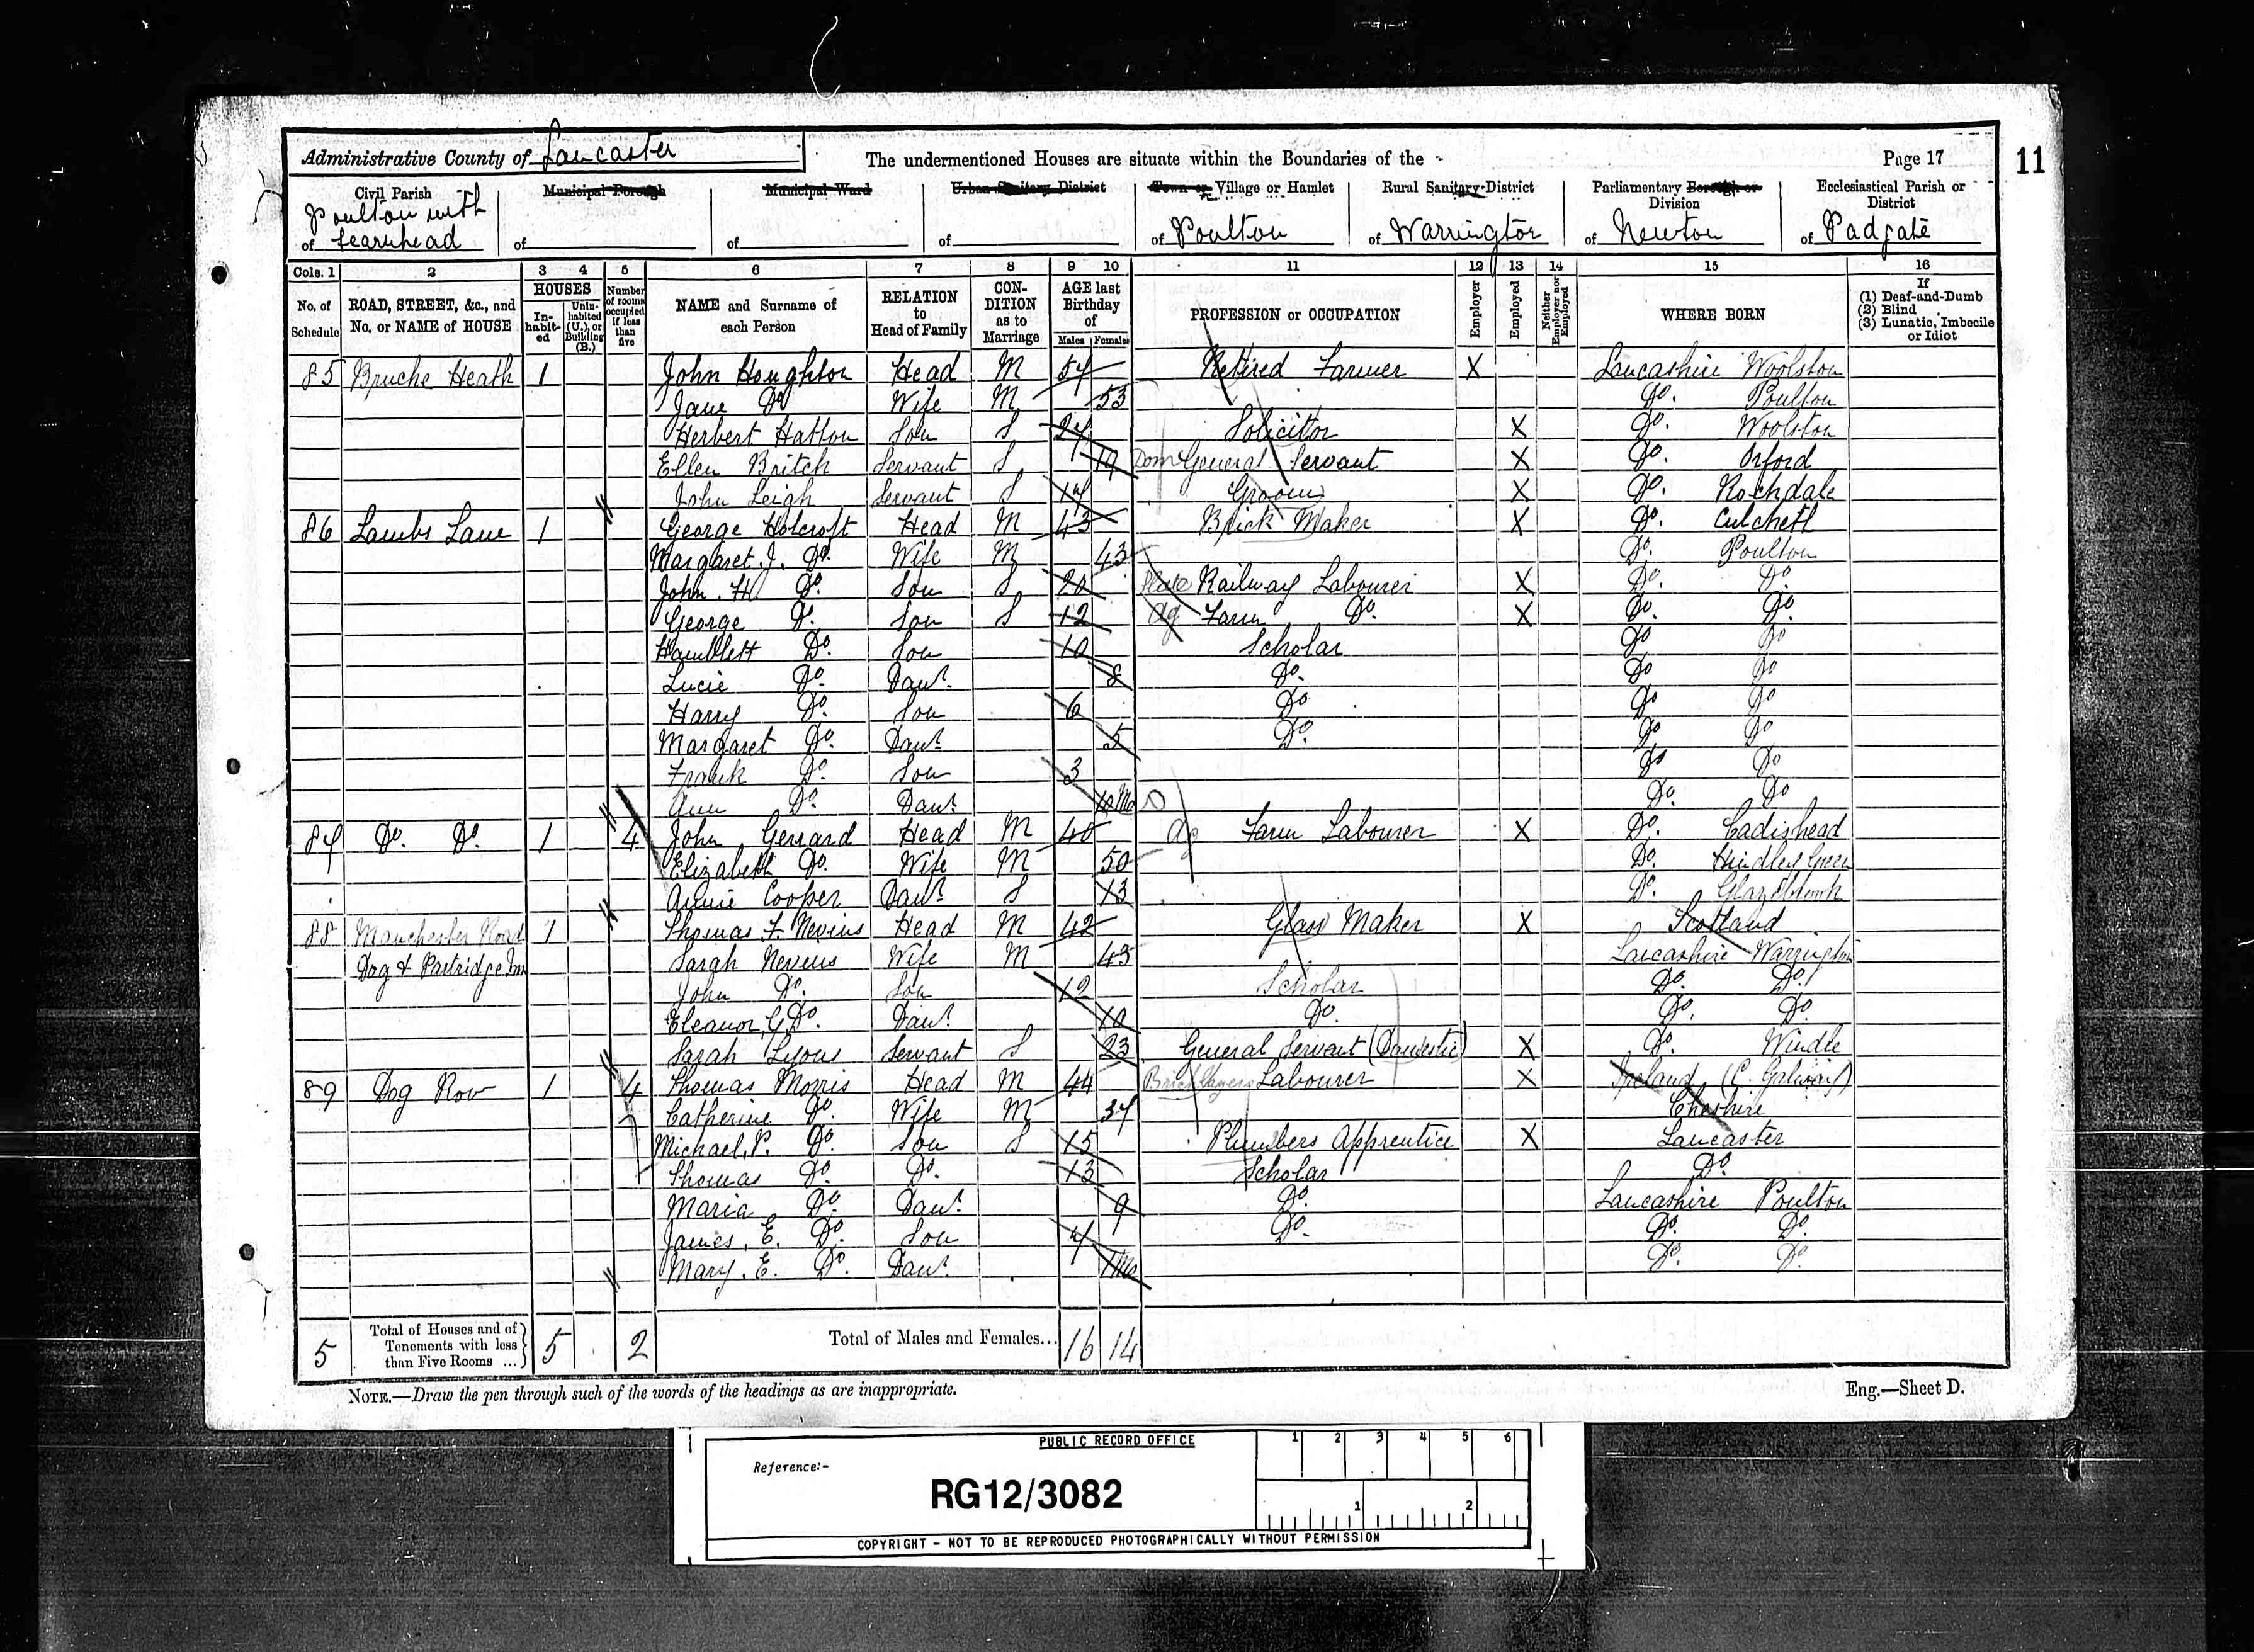 Administrative County of Lancaster The undermentioned Houses are situate within the Boundaries of the Page 17 11
Civil Parish Municipal Borough Municipal Ward Urban Sanitary District Town or Village or Hamlet Rural Sanitary District Parliamentary Borough or Division Ecclesiastical Parish or District
of Poulton with Fearnhead of of of of Poulton of Warrington of Newton of Padgate
Cols. 1 2 3 4 5 6 7 8 9 10 11 12 13 14 15 16
No. of Schedule ROAD, STREET, &c., and No. or NAME of HOUSE HOUSES Inhabited Uninhabited (U.), or Building (B.) Number of rooms occupied if less than five NAME and Surname of each Person RELATION to Head of Family CONDITION as to Marriage AGE last Birthday of Males Females PROFESSION or OCCUPATION Employer Employed Neither Employer nor Employed WHERE BORN If (1) Deaf-and-Dumb (2) Blind (3) Lunatic, Imbecile or Idiot
85 Bruche Heath 1 John Houghton Head M 57 Retired Farmer X Lancashire Woolston
Jane Do Wife M 53 Do. Poulton
Herbert Hatton Son S 27 Solicitor X Do. Woolston
Ellen Britch Servant S 19 Dom General Servant X Do. Orford
John Leigh Servant S 17 Groom X Do. Rochdale
86 Lambs Lane 1 George Holcroft Head M 43 Brick Maker X Do. Culcheth
Margaret. J. Do. Wife M 43 Do. Poulton
John. H. Do. Son S 20 Railway Labourer X Do. Do.
George Do. Son S 12 Ag Farm Do. X Do. Do.
Hamblett Do. Son 10 Scholar Do Do
Lucie Do. Daur. 8 Do. Do Do
Harry Do. Son 6 Do Do Do
Margaret Do. Daur. 5 Do. Do Do
Frank Do. Son 3 Do Do
Ann Do. Daur. 10 Mo Do. Do
87 Do. Do. 1 4 John Gerrard Head M 40 Ag Farm Labourer X Do. Cadishead
Elizabeth Do. Wife M 50 Do. Hindley Green
Annie Cooper Daur. S 13 Do. Glazebrook
88 Manchester Road 1 Thomas F. Nevins Head M 42 Glass Maker X Scotland
Dog & Partridge Inn Sarah Nevins Wife M 45 Lancashire Warrington
John Do. Son 12 Scholar Do. Do.
Eleanor, G. Do. Daur. 10 Do. Do. Do.
Sarah Lyons Servant S 23 General Servant (Domestic) X Do. Windle
89 Dog Row 1 4 Thomas Morris Head M 44 Bricklayers Labourer X Ireland (C. Galway)
Catherine Do. Wife M 37 Cheshire
Michael, P. Do. Son S 15 Plumbers Apprentice X Lancaster
Thomas Do. Do. 13 Scholar Do.
Maria Do. Daur. 9 Do. Lancashire Poulton
James. E. Do. Son 7 Do. Do. Do.
Mary. E. Do. Daur. Mo Do. Do.
5 Total of Houses and of Tenements with less than Five Rooms ... 5 2 Total of Males and Females... 16 14
NOTE.—Draw the pen through such of the words of the headings as are inappropriate. Eng.—Sheet D.
PUBLIC RECORD OFFICE 1 2 3 4 5 6
Reference:-
RG12/3082 1 2
COPYRIGHT - NOT TO BE REPRODUCED PHOTOGRAPHICALLY WITHOUT PERMISSION